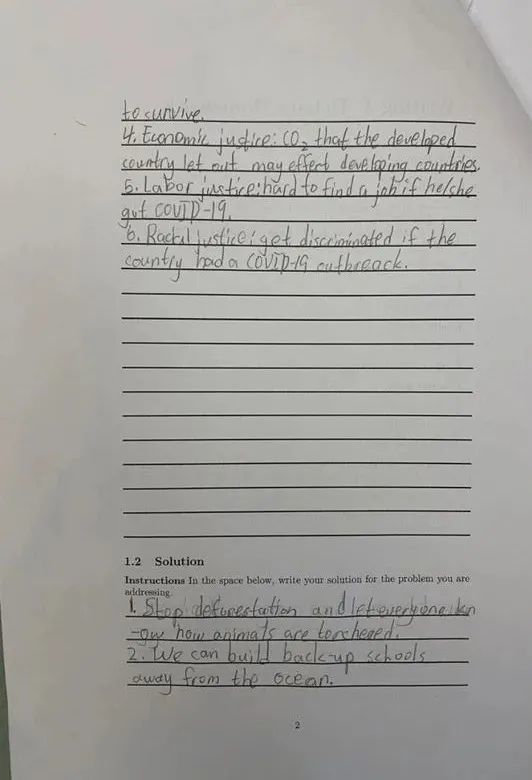 to survive.
4. Economic justice: CO2 that the developed
country let out may effert developing countries.
5. Labor justice: hard to find a job if he/she
got COVID-19.
6. Racial justice: get discriminated if the
country had a COVID-19 outbreack.
1.2 Solution
Instructions In the space below, write your solution for the problem you are
addressing.
1. Stop deforestation and let everyone kn
-ow how animals are torchered.
2. We can build back-up schools
away from the ocean.
2